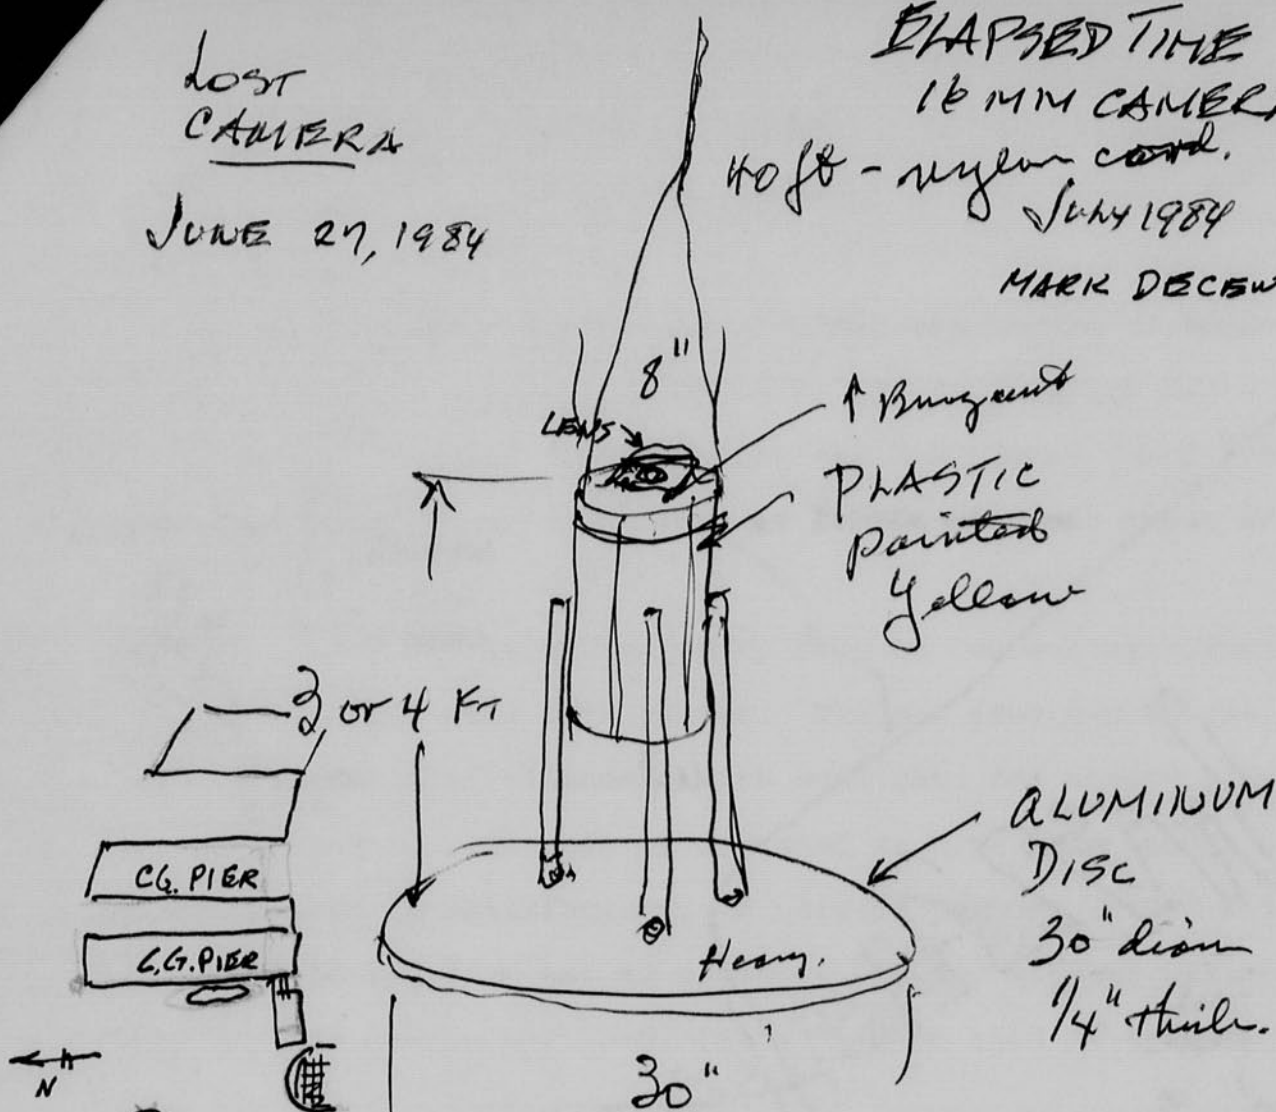 LOST
CAMERA
JUNE 27, 1984
ELAPSED TIME
16 MM CAMERA
40 ft - nylon cord.
JULY 1984
MARK DECEW
8"
LENS
↑ Buoyant
PLASTIC
painted
Yellow
3 or 4 FT
C.G. PIER
C.G. PIER
N
Heavy.
ALUMINUM
DISC
30" diam
1/4" thick.
30"